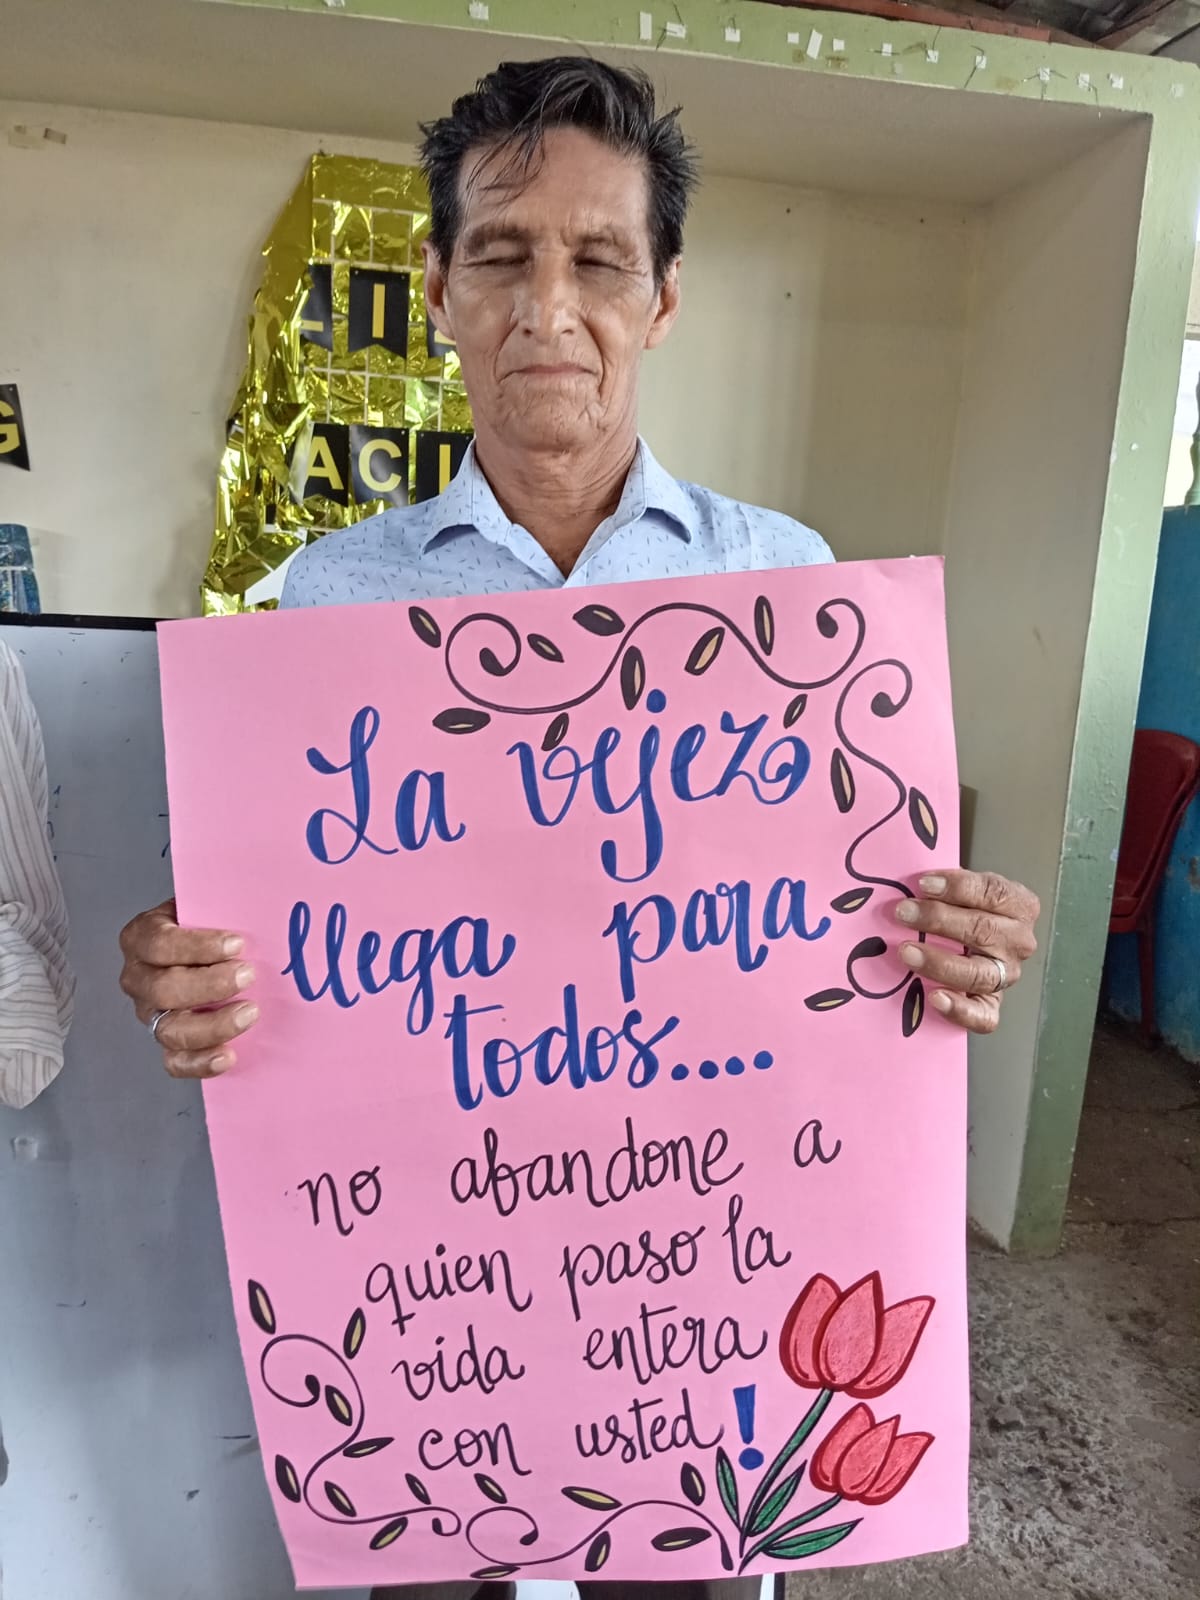 LI
G
ACI
La vejez
llega para
todos....
no abandone a
quien paso la
vida entera
con usted!